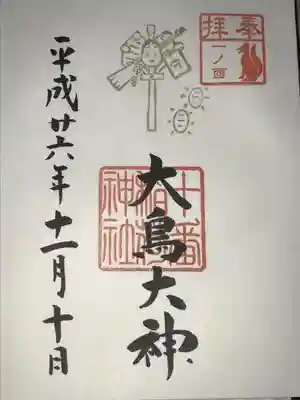 奉拝
一ノ酉
大鳥大神
十番
稲荷
神社
平成廿六年十一月十日